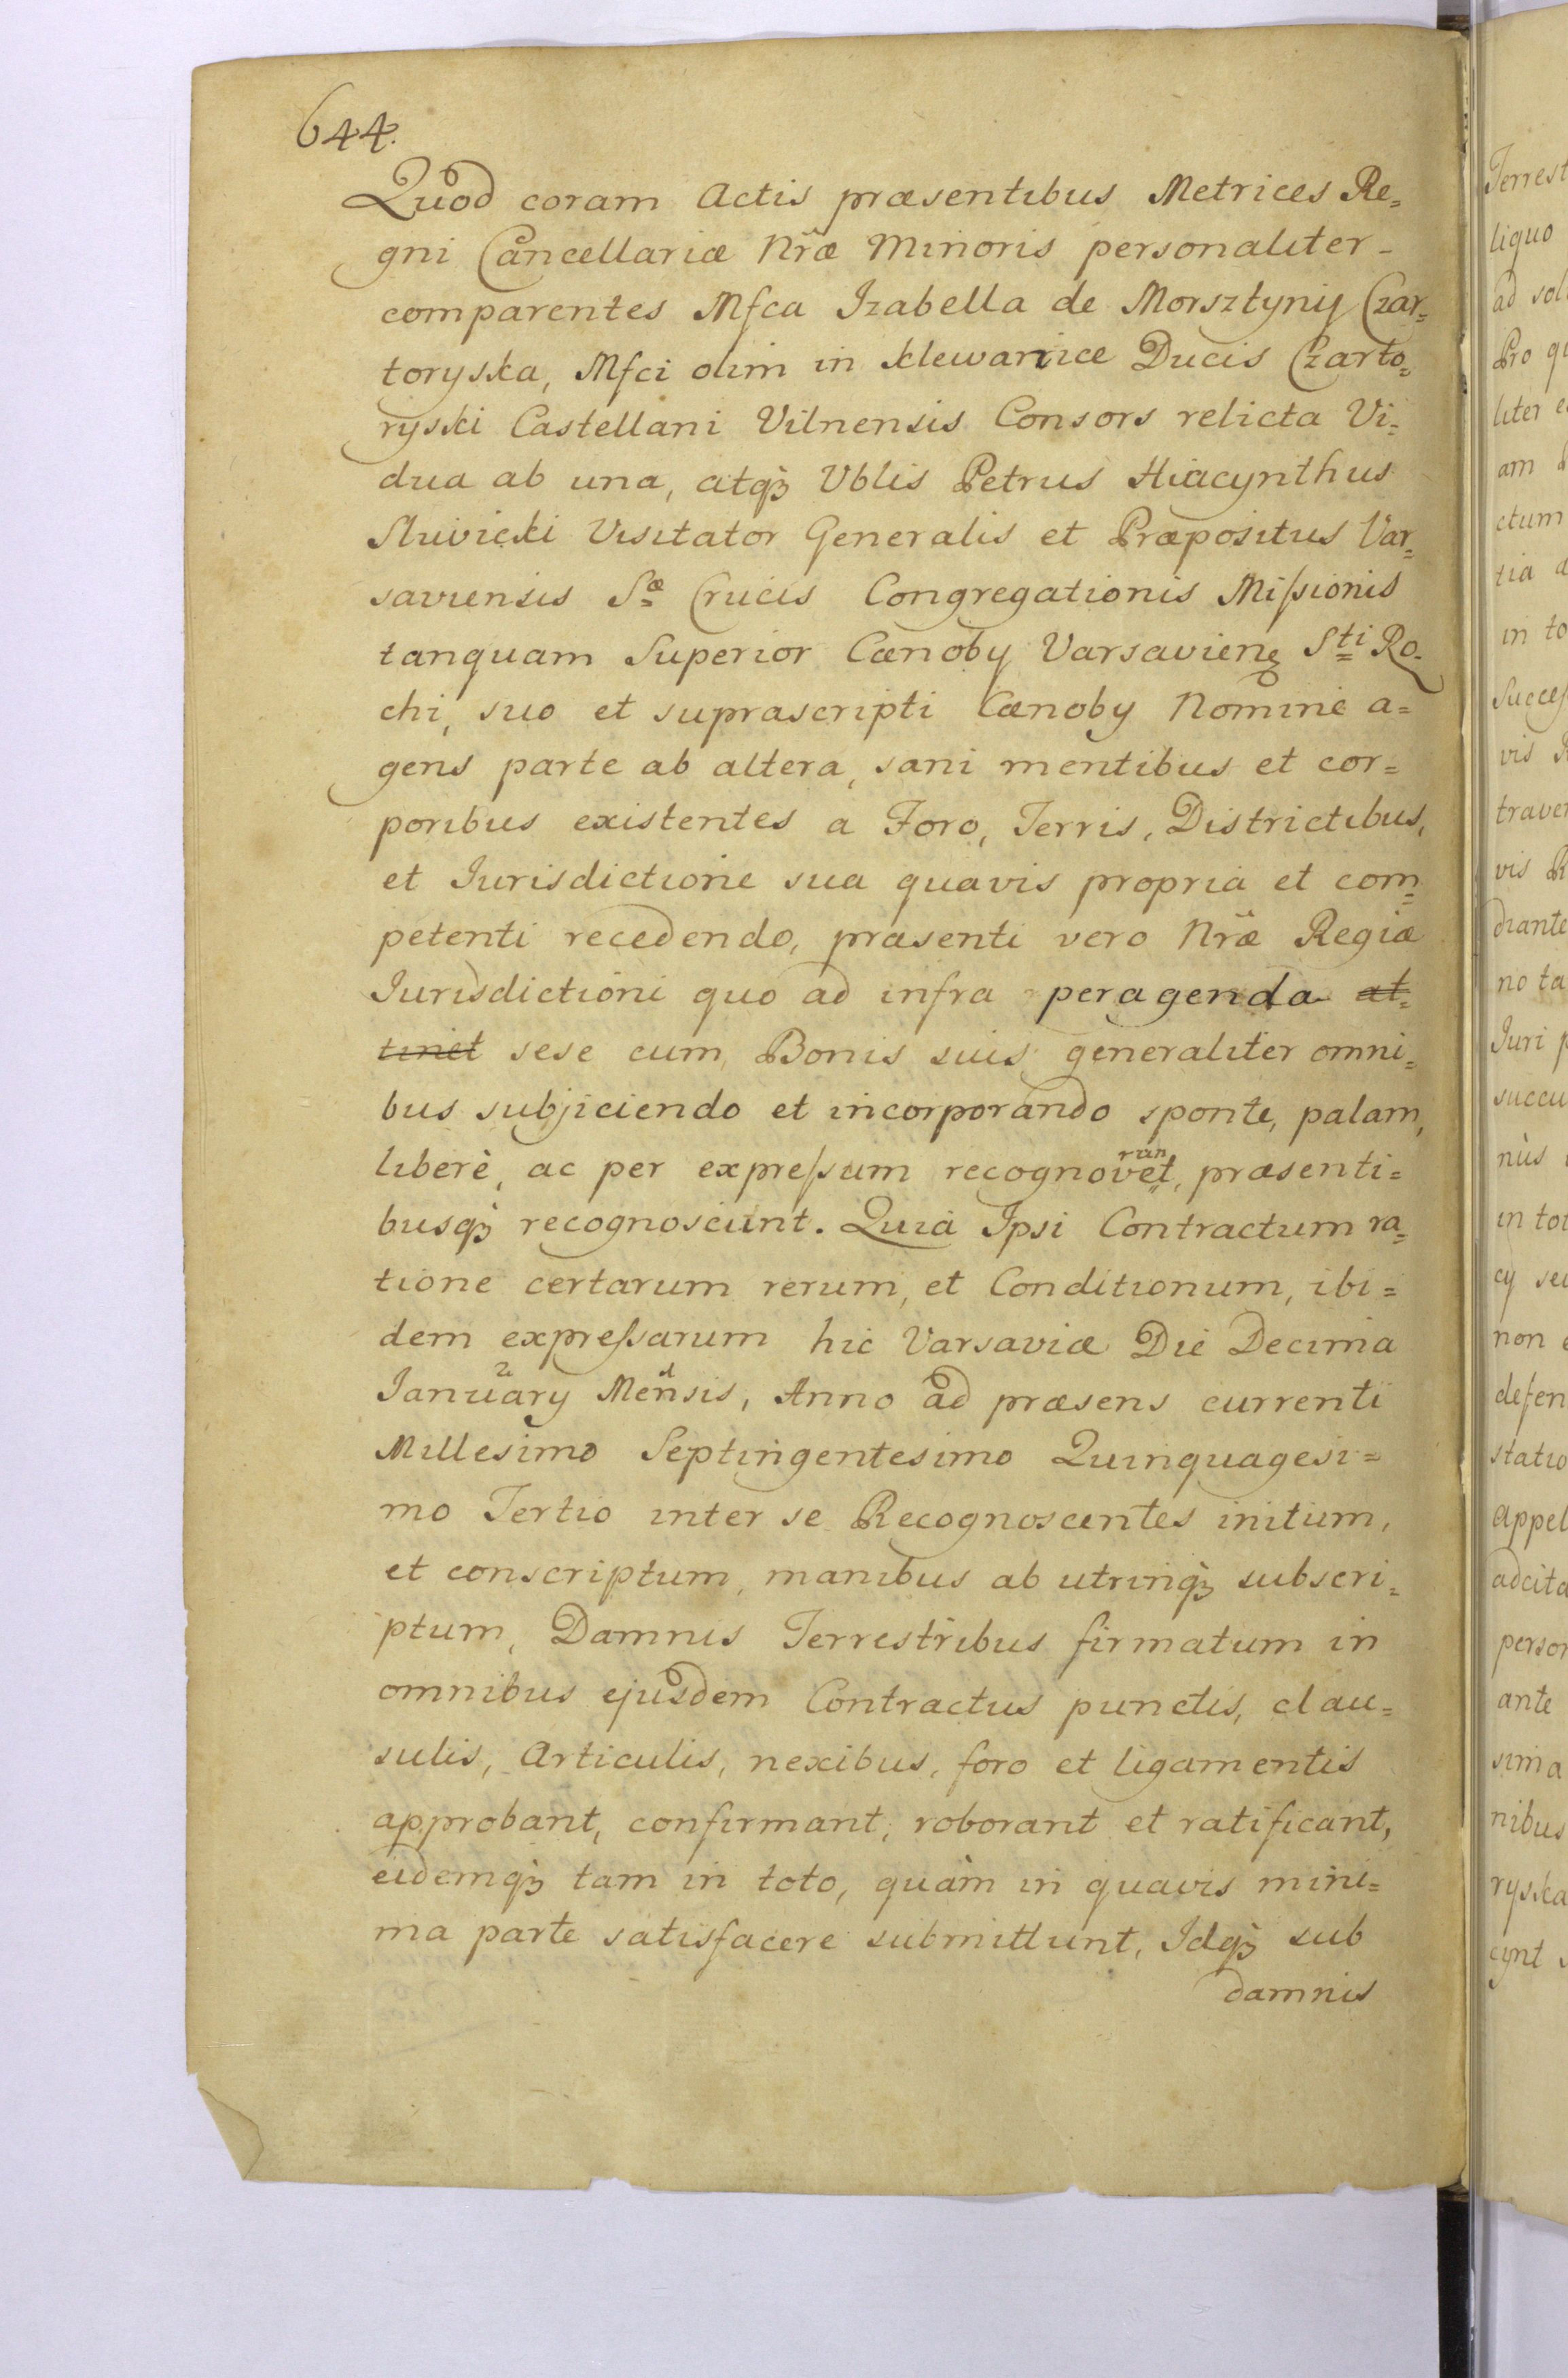 644.
Quod coram Actis præsentibus Metrices Re=
gni Cancellariæ Nræ Minoris personaliter -
comparentes Mfca Izabella de Morsztyny Czar=
toryska, Mfci olim in Klewan ice Ducis Czarto=
ryski Castellani Vilnensis Consors relicta Vi=
dua ab una, atqȝ Vblis Petrus Hiacynthus
Sliwicki Visitator Generalis et Præpositus Var=
saviensis Sæ Crucis Congregationis Missionis
tanquam Superior Cœnoby Varsavien Sti Ro-
chi, suo et suprascripti Cœnoby Nomine a=
gens parte ab altera, sani mentibus et cor=
poribus existentes a Foro, Terris, Districtibus,
et Iurisdictione sua quavis propria et com=
petenti recedendo, præsenti vero Nræ Regiæ
Iurisdictioni quo ad infra peragenda at=
tinet sese cum Bonis suis generaliter omni=
bus subjiciendo et incorporando sponte, palam,
liberè, ac per expressum recognovet, præsenti=
run
busqȝ recognoscunt. Quia Ipsi Contractum ra=
tione certarum rerum, et Conditionum, ibi=
dem expressarum hic Varsaviæ Die Decima
January Mensis, Anno ad præsens currenti
Millesimo Septingentesimo Quinquagesi=
mo Tertio inter se Recognoscentes initum,
et conscriptum, manibus ab utrinqȝ subscri=
ptum, Damnis Terrestribus firmatum in
omnibus ejusdem Contractus punctis, clau=
sulis, Articulis, nexibus, foro et ligamentis
approbant, confirmant, roborant et ratificant,
eidemqȝ tam in toto, quàm in quavis mini=
ma parte satisfacere submittunt, Idqȝ sub
damnis
liquo
ad sol
Pro qu
am
ctum
tia a
in to
vis
vis R
diante
no ta
nùs
in tot
non e
defen
statio
appel
adcita
person
ante
sima
nibus
ryska
cynt